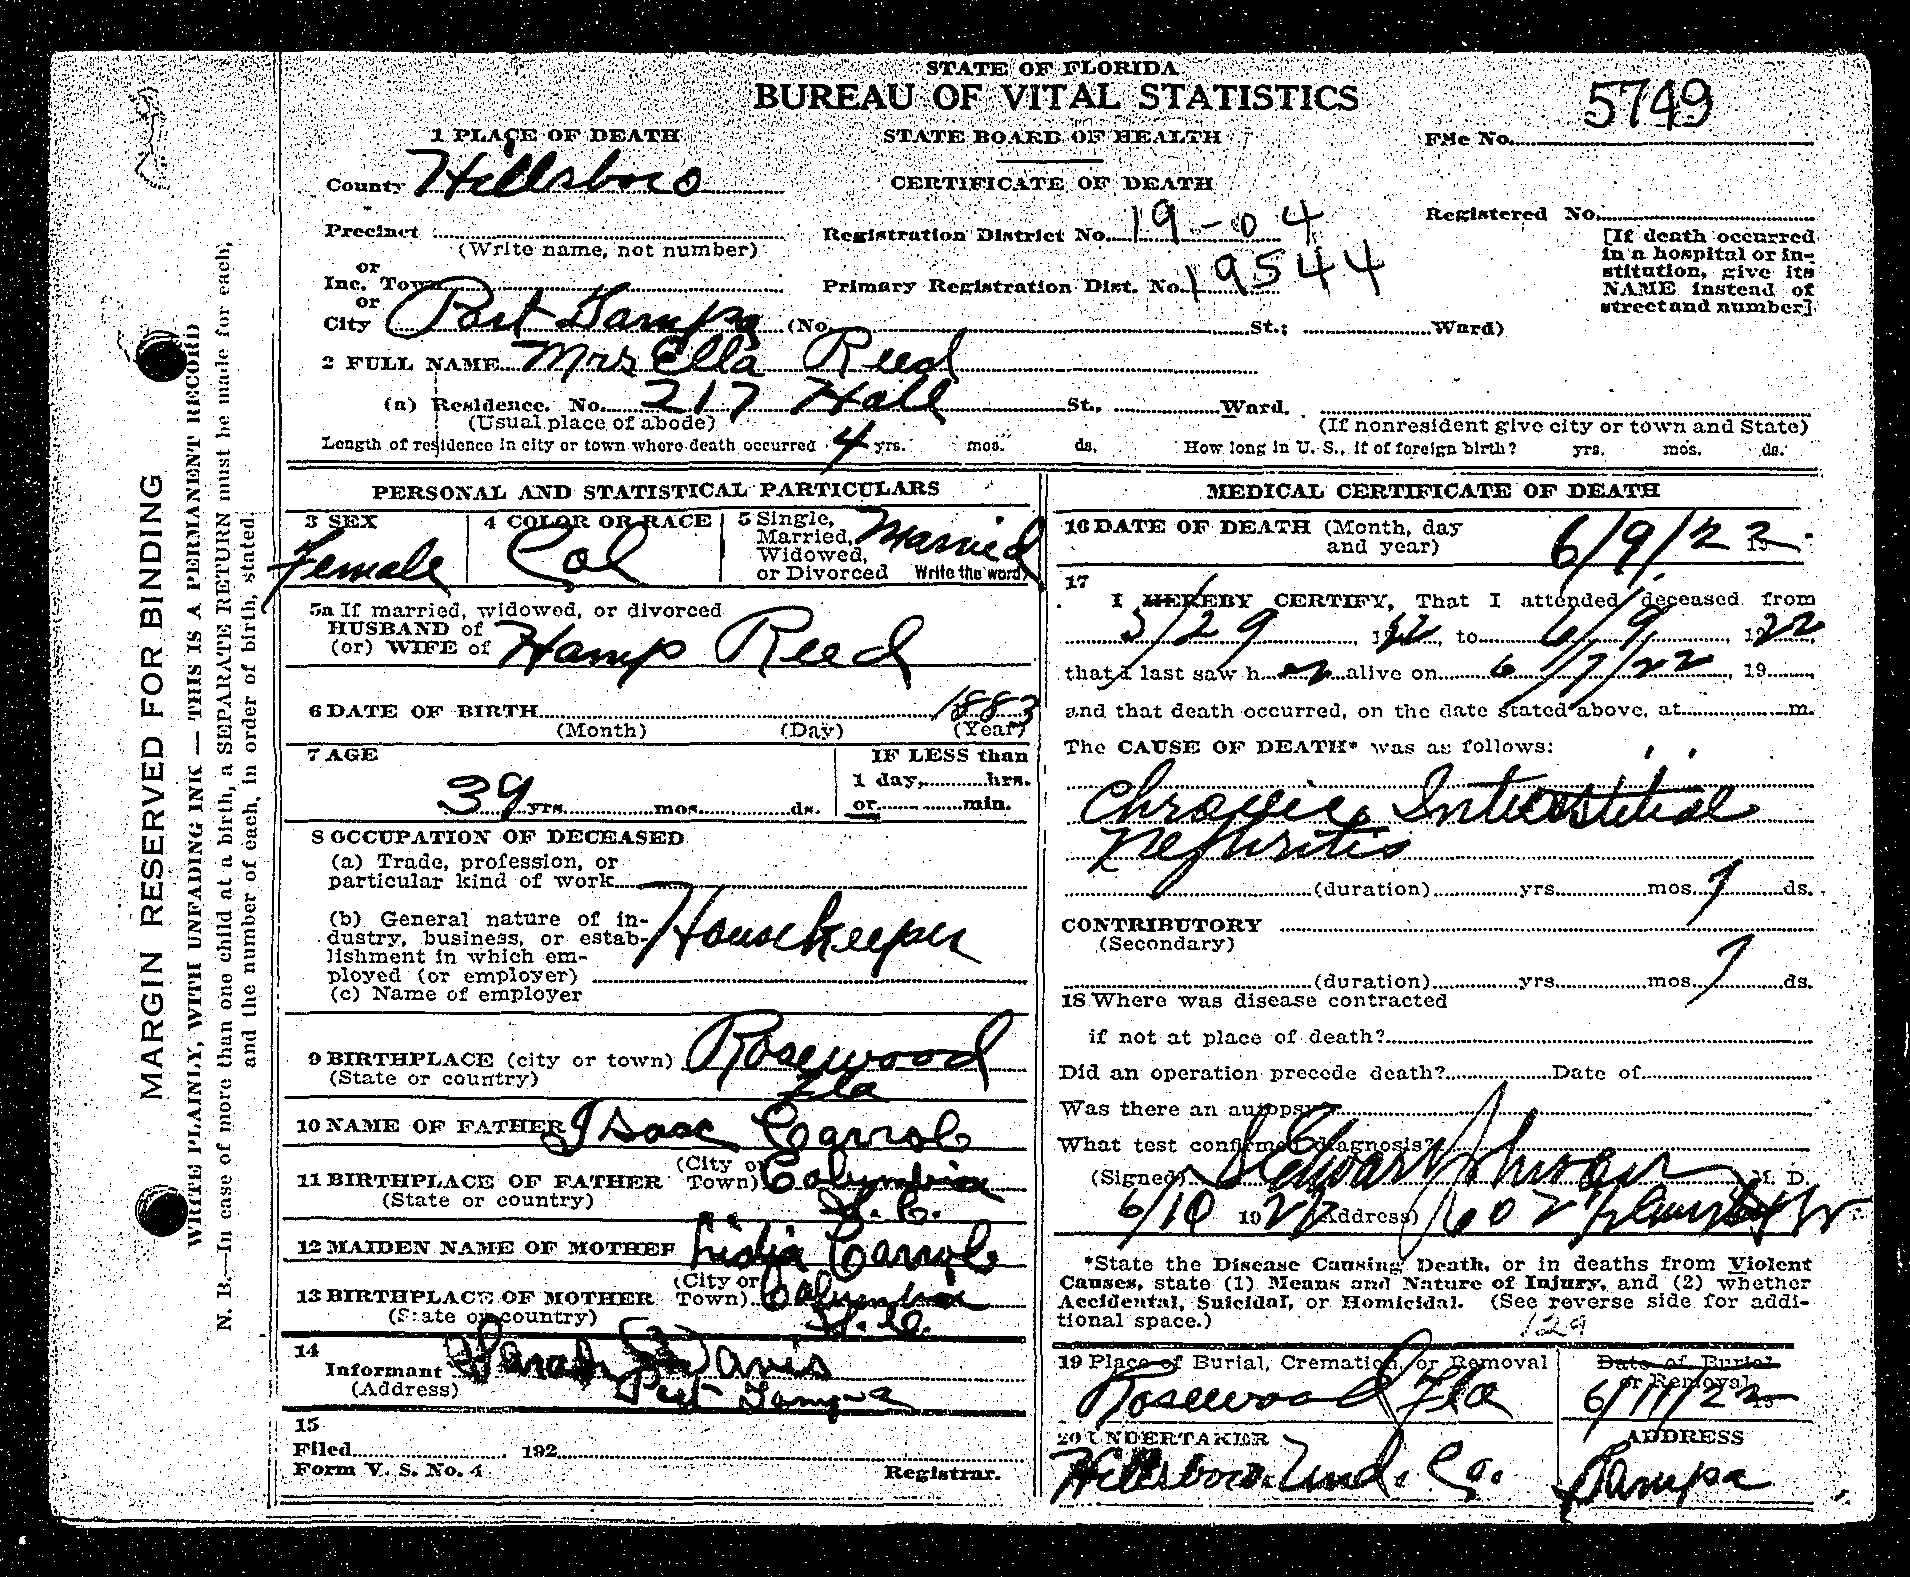 STATE OF FLORIDA
BUREAU OF VITAL STATISTICS
5749
1 PLACE OF DEATH
STATE BOARD OF HEALTH
File No.
County Hillsboro
CERTIFICATE OF DEATH
Precinct
(Write name, not number)
Registration District No. 19-04
Registered No.
[If death occurred in a hospital or institution, give its NAME instead of street and number]
or
Inc. Town
Primary Registration Dist. No. 19544
or
City Port Tampa (No. St.; Ward)
2 FULL NAME Mrs Ella Reed
(a) Residence. No. 217 Hall St., Ward.
(Usual place of abode)
(If nonresident give city or town and State)
Length of residence in city or town where death occurred 4 yrs. mos. ds. How long in U. S., if of foreign birth? yrs. mos. ds.
PERSONAL AND STATISTICAL PARTICULARS
3 SEX
Female
4 COLOR OR RACE
Col
5 Single,
Married,
Widowed,
or Divorced Write the word)
Married
5a If married, widowed, or divorced
HUSBAND of
(or) WIFE of Hamp Reed
6 DATE OF BIRTH 1883
(Month) (Day) (Year)
7 AGE
39 yrs. mos. ds.
IF LESS than
1 day, hrs.
or min.
8 OCCUPATION OF DECEASED
(a) Trade, profession, or
particular kind of work
(b) General nature of in-
dustry, business, or estab-
lishment in which em-
ployed (or employer)
Housekeeper
(c) Name of employer
9 BIRTHPLACE (city or town) Rosewood
(State or country) Fla
10 NAME OF FATHER Isaac Carrol
11 BIRTHPLACE OF FATHER (City or Town) Columbia
(State or country) S. C.
12 MAIDEN NAME OF MOTHER Lidia Carrol
13 BIRTHPLACE OF MOTHER (City or Town) Columbia
(State or country) S. C.
14
Informant Sarah Davis
(Address) Port Tampa
15
Filed 192
Form V. S. No. 4 Registrar.
MEDICAL CERTIFICATE OF DEATH
16 DATE OF DEATH (Month, day
and year) 6/9/22
17
I HEREBY CERTIFY, That I attended deceased from
5/29, 1922, to 6/9, 1922
that I last saw her alive on 6/7/22, 19
and that death occurred, on the date stated above, at m.
The CAUSE OF DEATH* was as follows:
Chronic Interstitial
Nephritis
(duration) yrs. mos. ds.
CONTRIBUTORY
(Secondary)
(duration) yrs. mos. ds.
18 Where was disease contracted
if not at place of death?
Did an operation precede death? Date of
Was there an autopsy?
What test confirmed diagnosis?
(Signed) M. D.
6/10 1922 (Address) 602
*State the Disease Causing Death, or in deaths from Violent
Causes, state (1) Means and Nature of Injury, and (2) whether
Accidental, Suicidal, or Homicidal. (See reverse side for addi-
tional space.)
129
19 Place of Burial, Cremation, or Removal
Rosewood Fla
Date of Burial
or Removal
6/11/22
20 UNDERTAKER
Hillsboro Und. Co.
ADDRESS
Tampa
MARGIN RESERVED FOR BINDING
WRITE PLAINLY, WITH UNFADING INK — THIS IS A PERMANENT RECORD
N. B.—In case of more than one child at a birth, a SEPARATE RETURN must be made for each,
and the number of each, in order of birth, stated